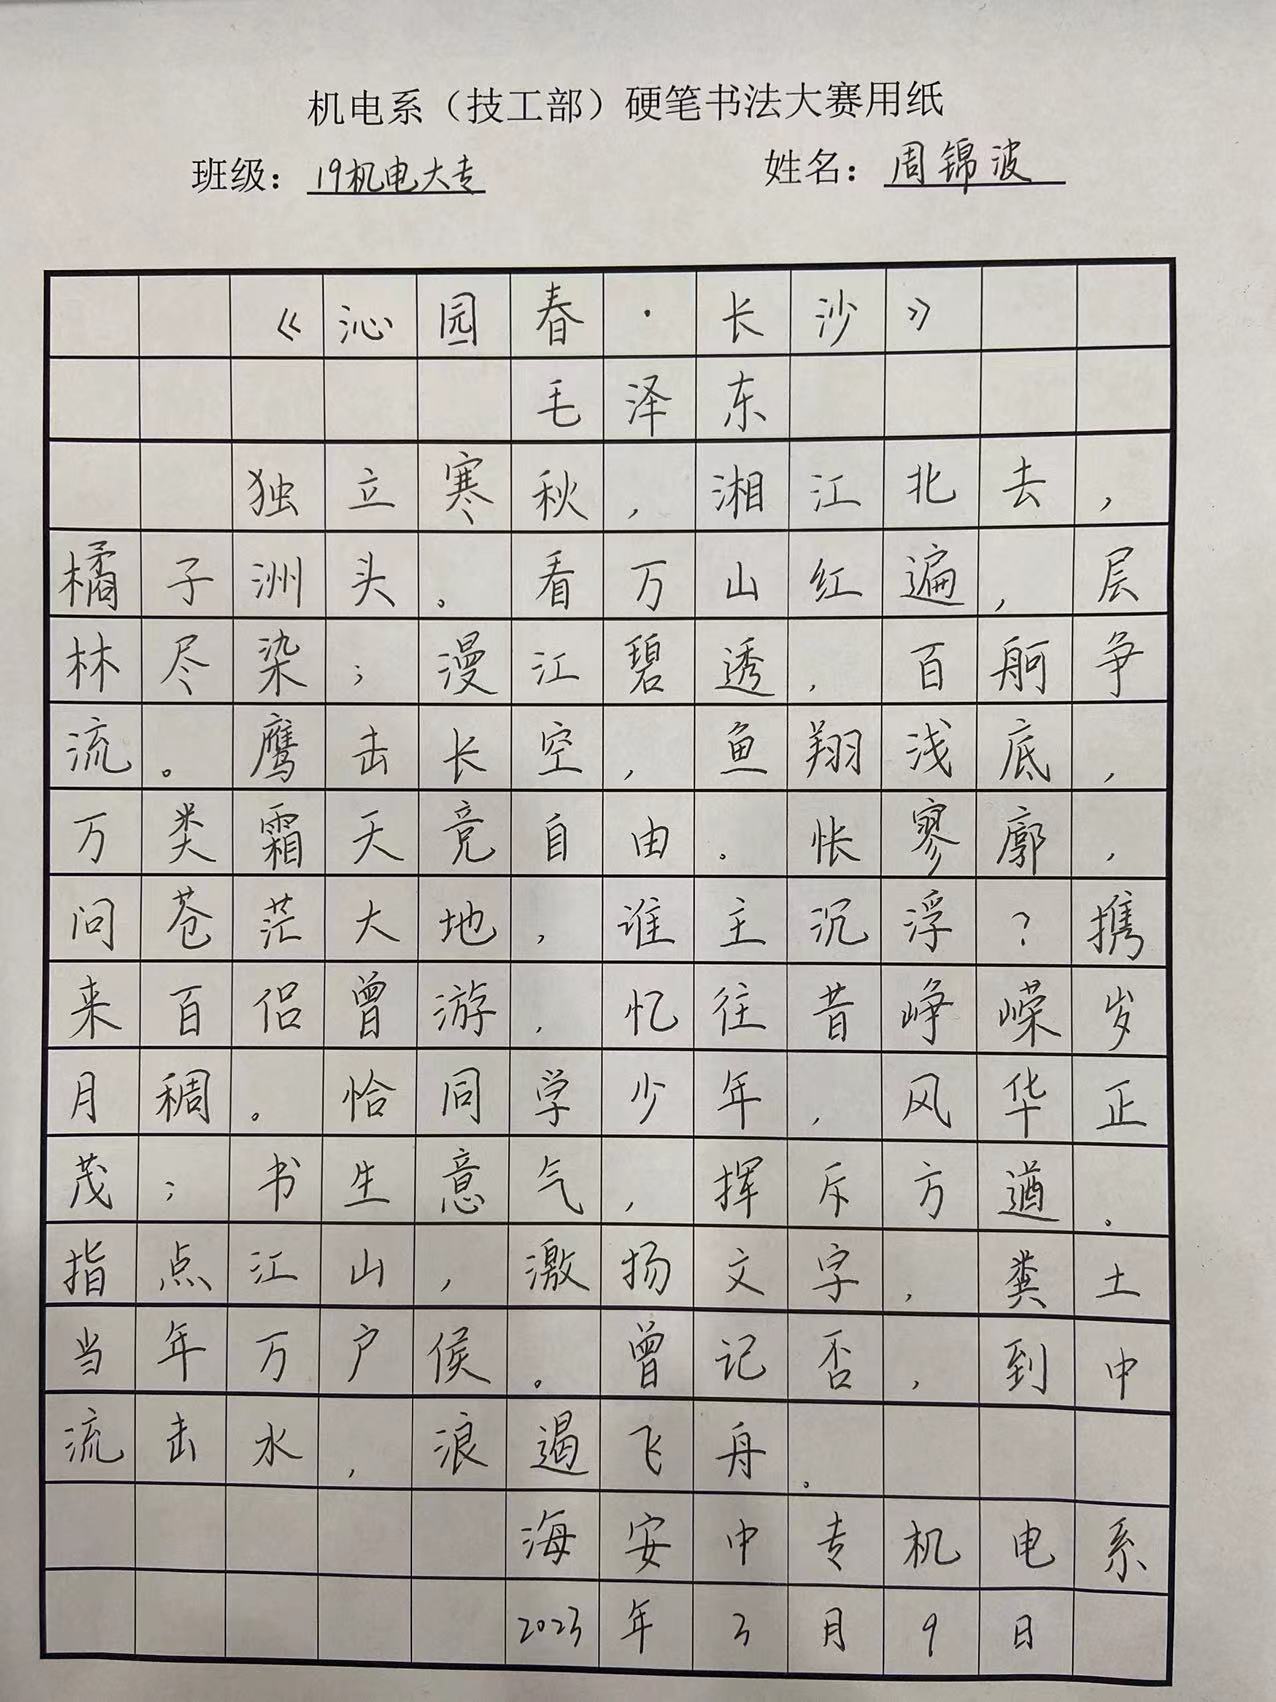 机电系（技工部）硬笔书法大赛用纸
班级：19机电大专 姓名：周锦波
《沁园春·长沙》
毛泽东
独立寒秋，湘江北去，
橘子洲头。看万山红遍，层
林尽染；漫江碧透，百舸争
流。鹰击长空，鱼翔浅底，
万类霜天竞自由。怅寥廓，
问苍茫大地，谁主沉浮？携
来百侣曾游，忆往昔峥嵘岁
月稠。恰同学少年，风华正
茂；书生意气，挥斥方遒。
指点江山，激扬文字，粪土
当年万户侯。曾记否，到中
流击水，浪遏飞舟。
海安中专机电系
2023年3月9日